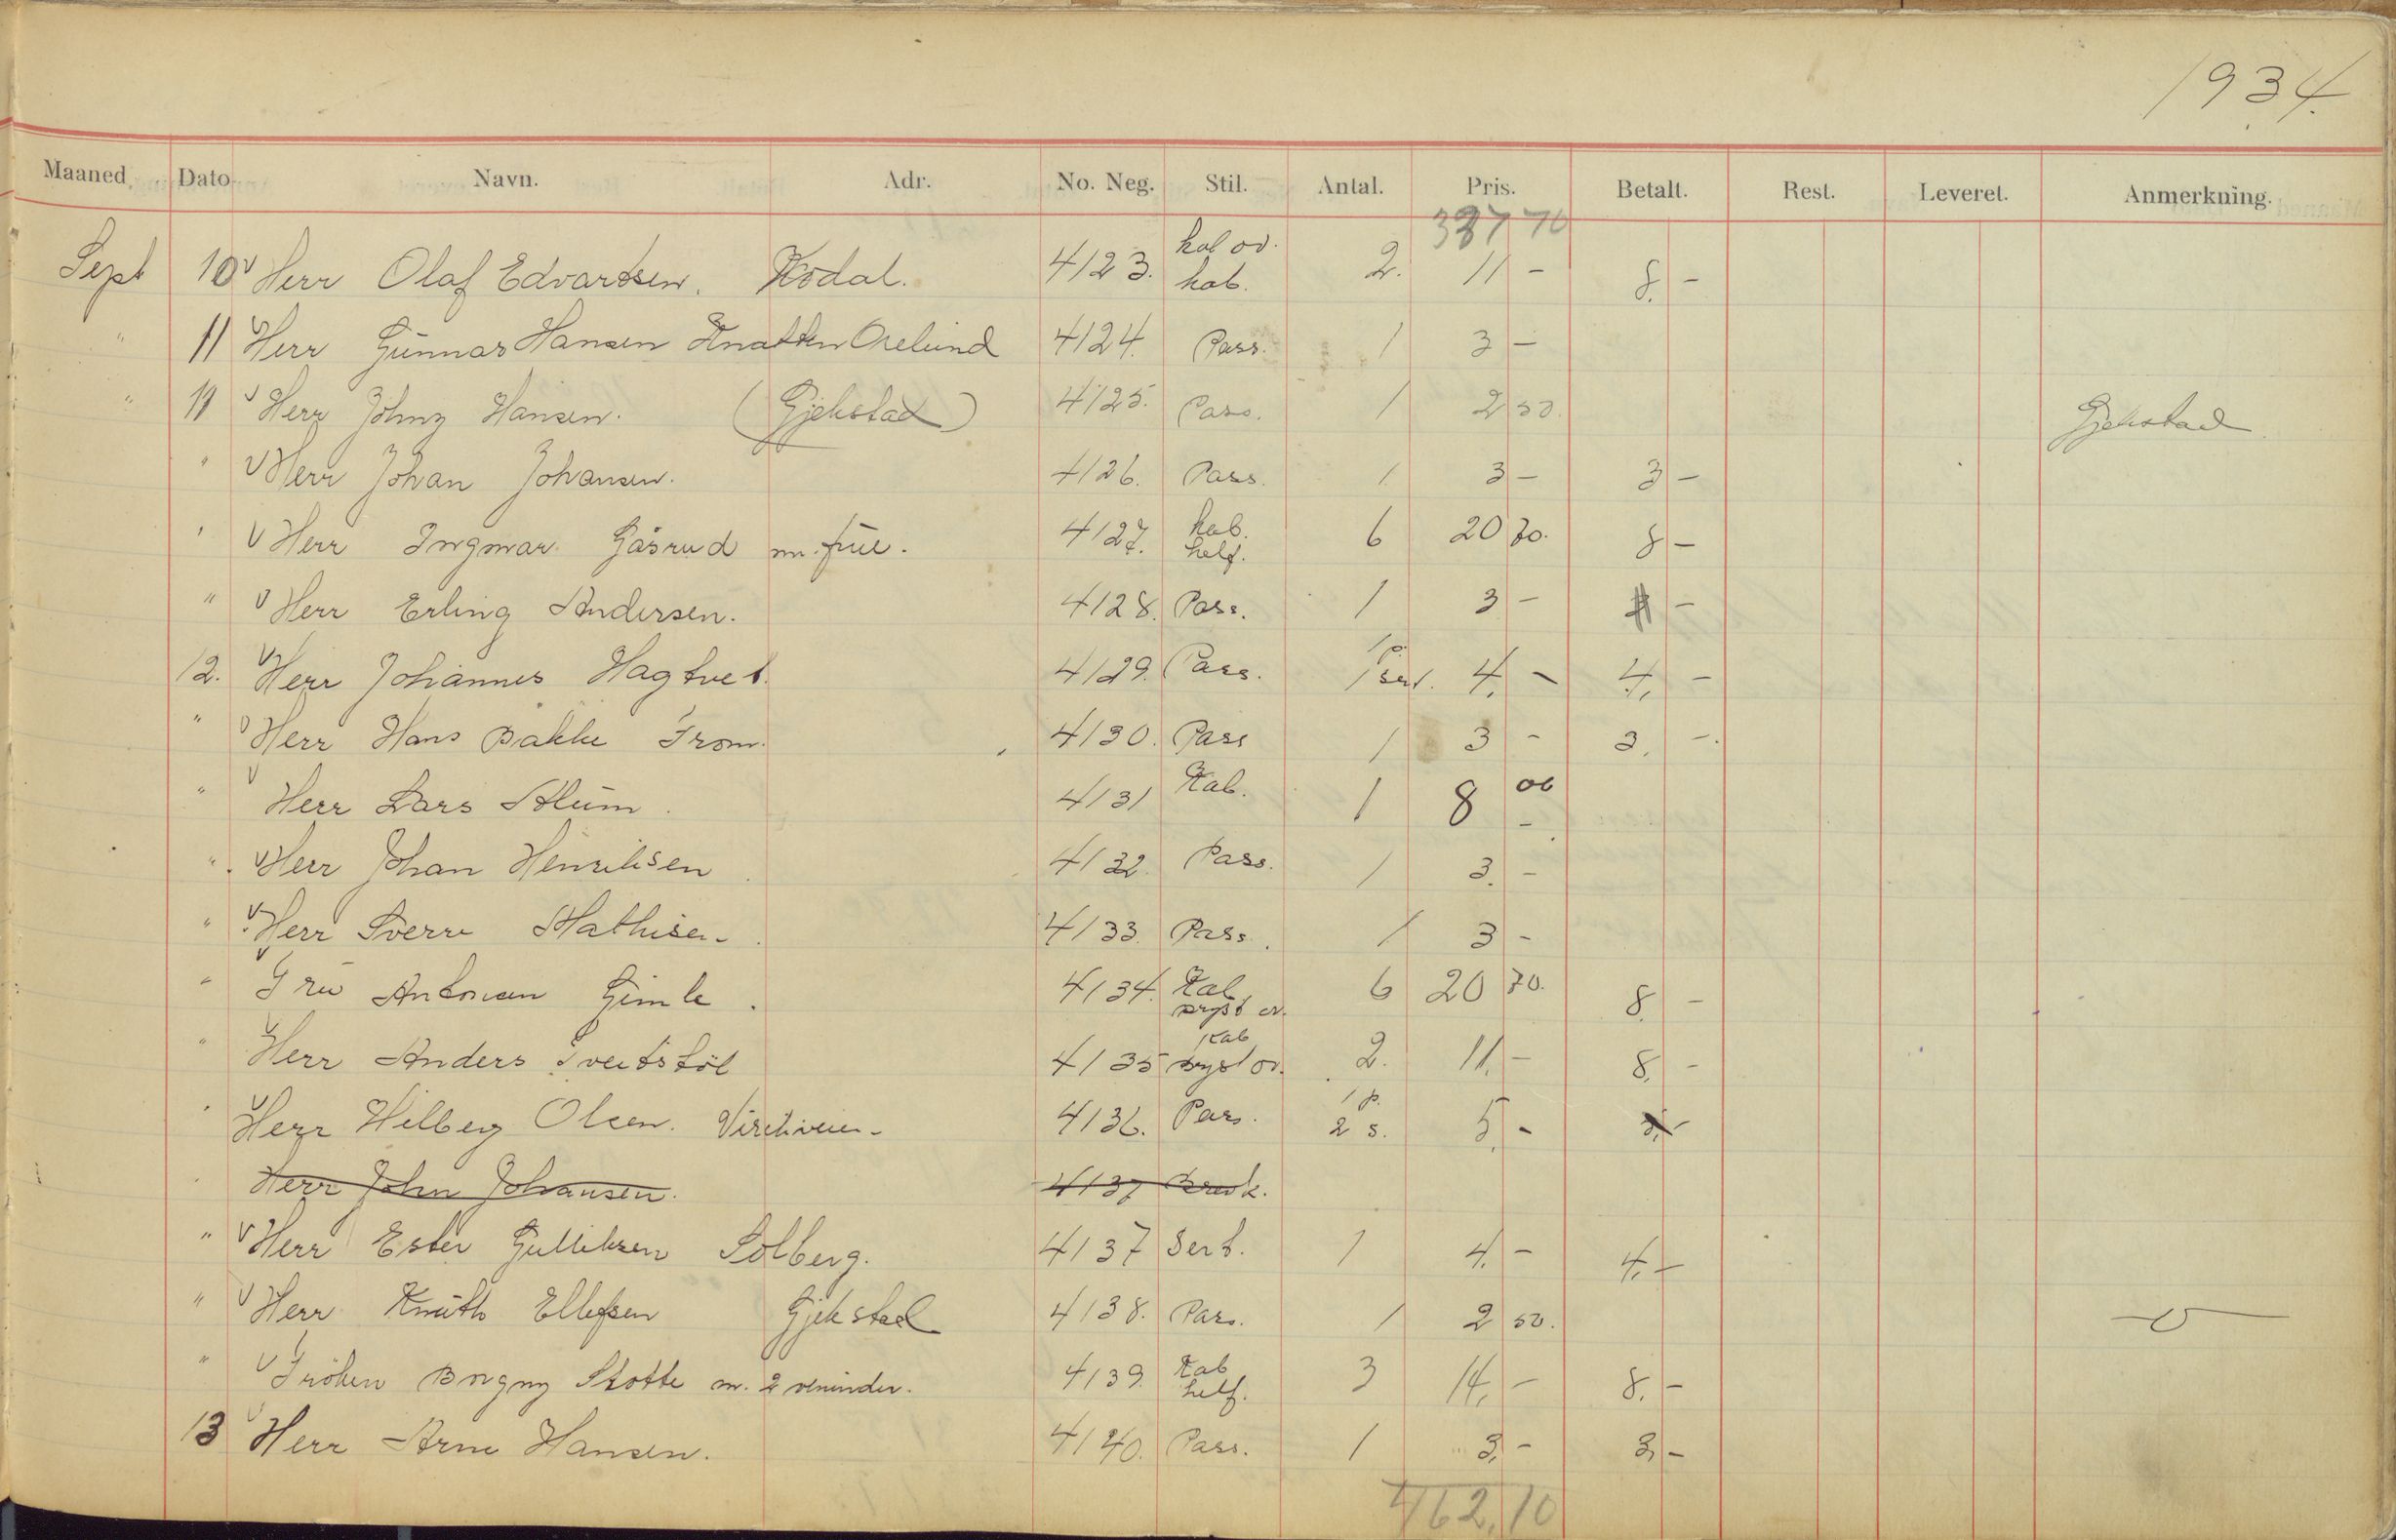 1934.
Maaned. Dato Navn. Adr. No. Neg. Stil. Antal. Pris. Betalt. Rest. Leveret. Anmerkning.
70
Sept 10 v Herr Olaf Edvardsen. Kodal. 4123. kab ov. kab. 2. 11 - 8. -
" 11 v Herr Gunnar Hansen Knatten Oselund 4124. Pass. 1 3 -
" 11 v Herr Johny Hansen. (Gjekstad) 4125. Pass. 1 2 50. Gjekstad
" v Herr Johan Johansen. 4126. Pass. 1 3 - 3 -
" v Herr Ingmar Gåsrud m. frue. 4127. kab. helf. 6 20 70. 8 -
" v Herr Erling Andersen. 4128. Pass. 1 3 - -
12. v Herr Johannes Hagtvet. 4129. Pass. 1 p. 1 ser. 4. - 4. -
" v Herr Hans Bakke Trom. 4130. Pass 1 3 - 3. -.
" v Herr Lars Alum. 4131 Kab. 1 8 00 -
" v Herr Johan Henriksen 4132. Pass. 1 3. -
" v Herr Sverre Mathisen 4133. Pass. 1 3 -
" v Fru Antonsen Gimle. 4134. Kab. bryst ov. 6 20 70. 8. -
" v Herr Anders Tveitstøl 4135 Kab bryst ov. 2. 11. - 8. -
" v Herr Hilberg Olsen. 4136. Pass. 1 p. 2 s. 5. - 5. -
Herr John Johansen. 4137 Brevk.
" v Herr Ester Gulliksen Solberg. 4137 Sert. 1 4. - 4. -
" v Herr Knuth Ellefsen Gjekstad 4138. Pass. 1 2 50.
" v Frøken Borgny Stotte m. 2 veninder. 4139. Kab helf. 3 14. - 8. -
13 v Herr Arne Hansen. 4140. Pass. 1 3. - 3. -
462,10